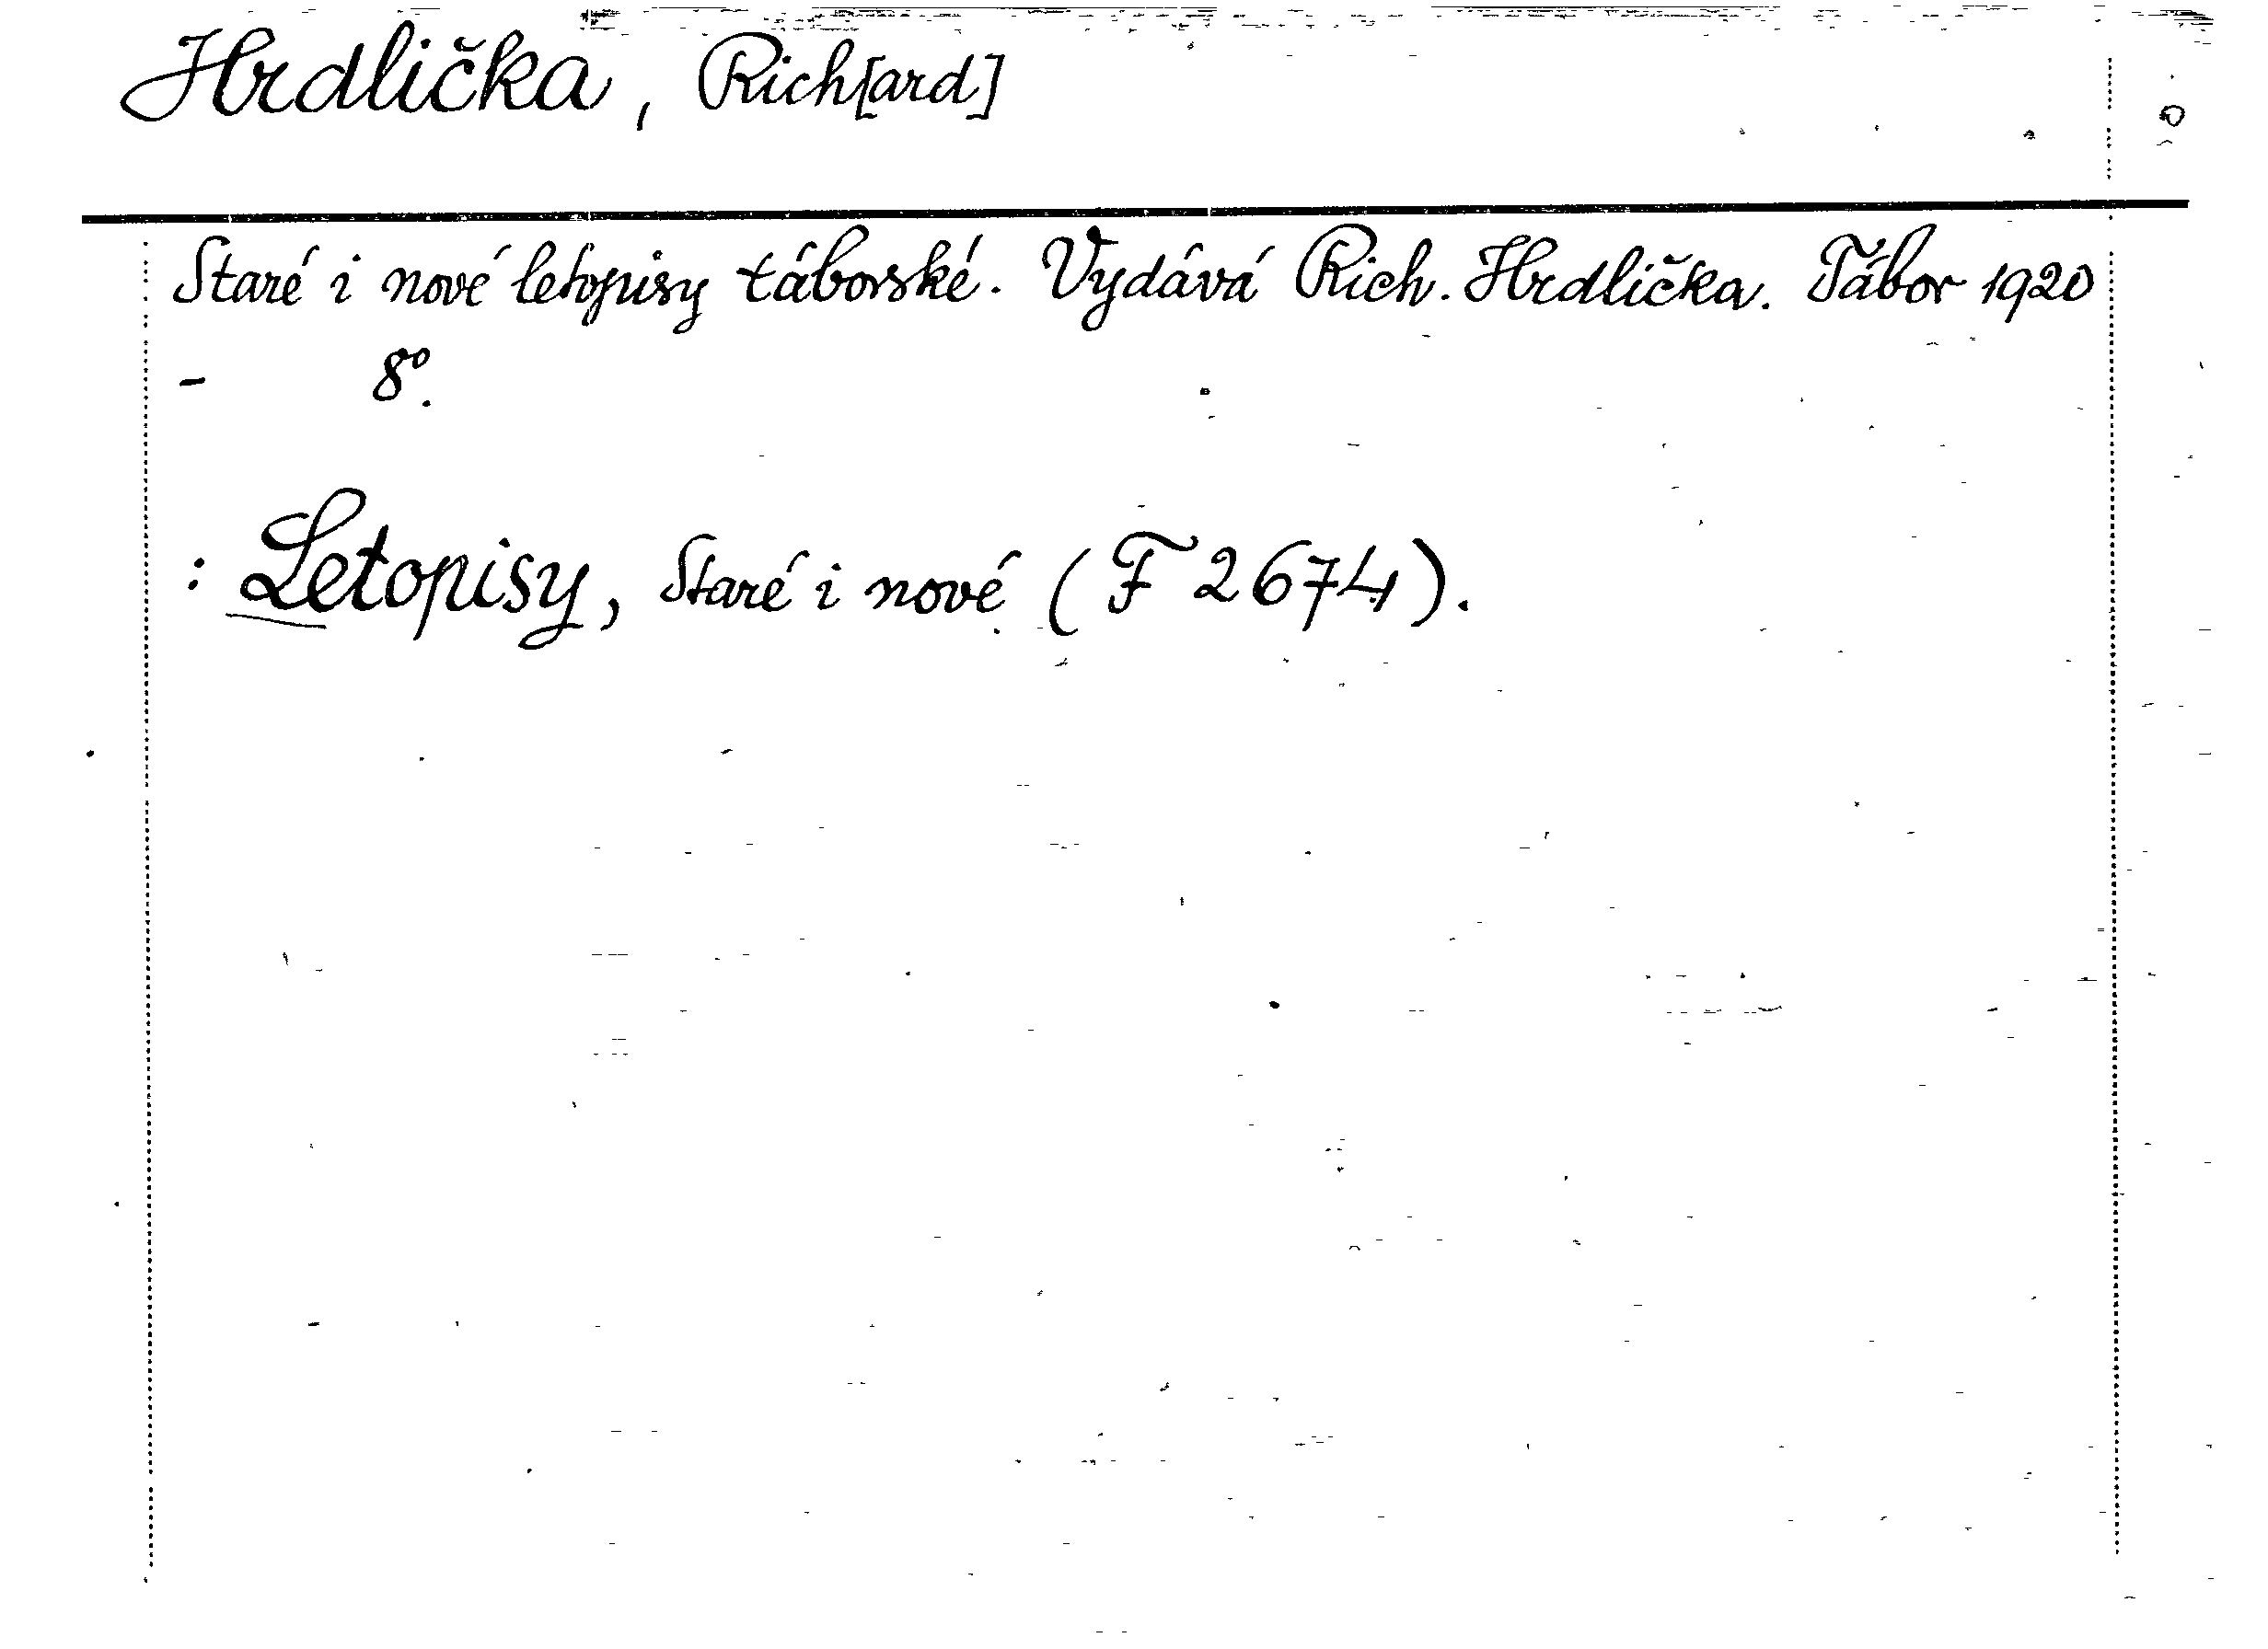 Hrdlička, Rich[ard]
Staré i nové letopisy táborské. Vydává Rich. Hrdlička. Tábor 1920
- 8°.
: Letopisy, Staré i nové (F 2674).